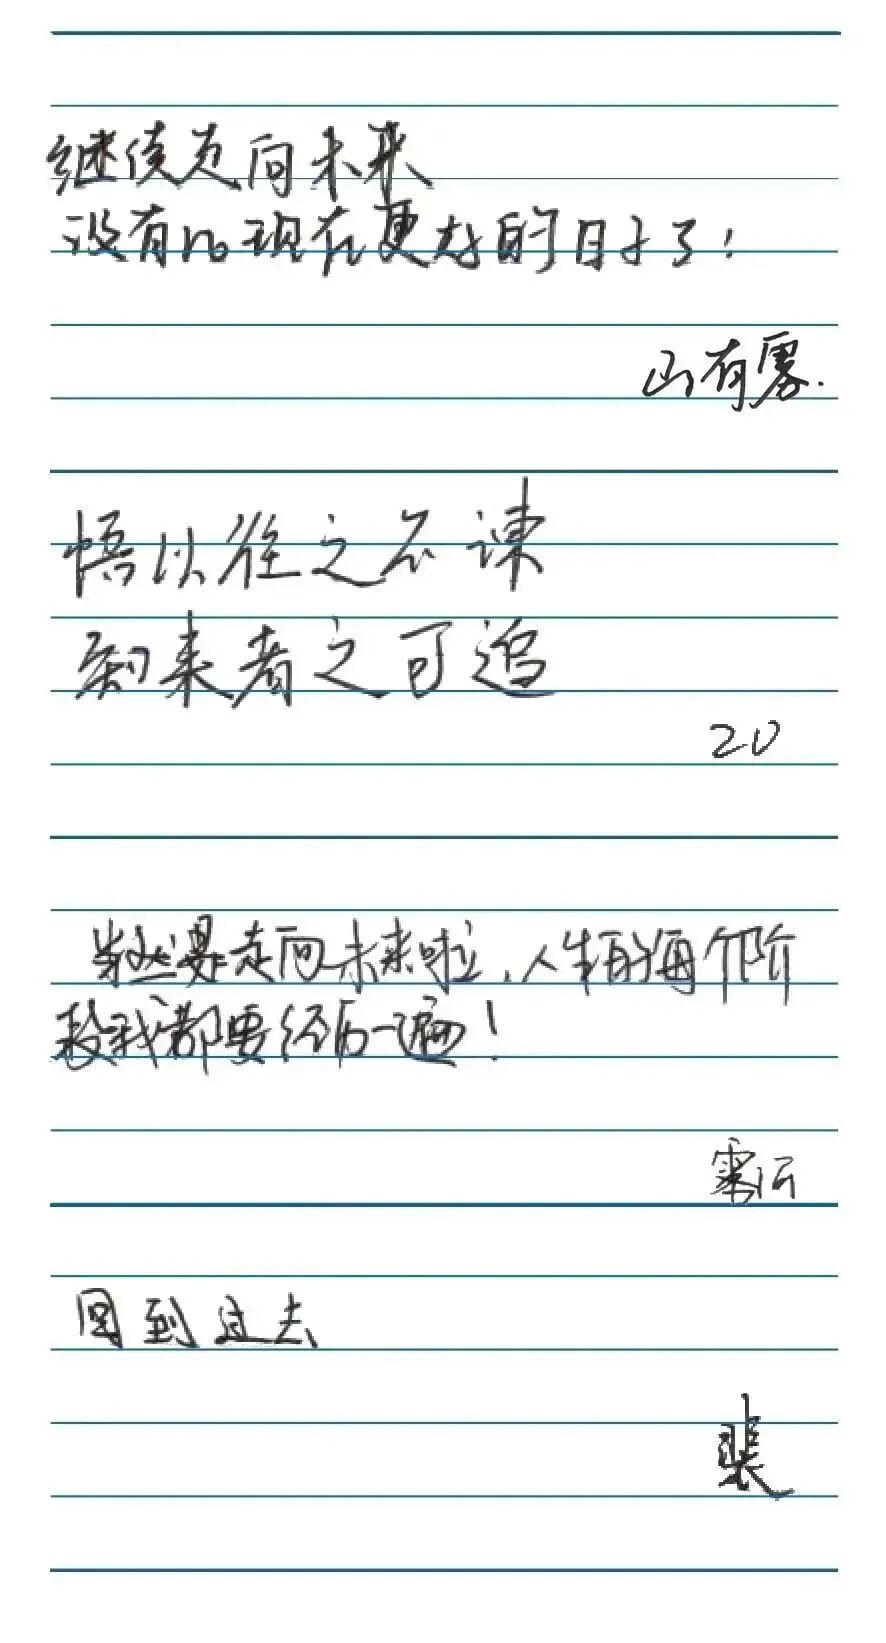 继续走向未来
没有比现在更好的日子了！
山有雾.
悟以往之不谏
知来者之可追
20
当然是走向未来啦，人生的每个阶
段我都要经历一遍！
回到过去
裴